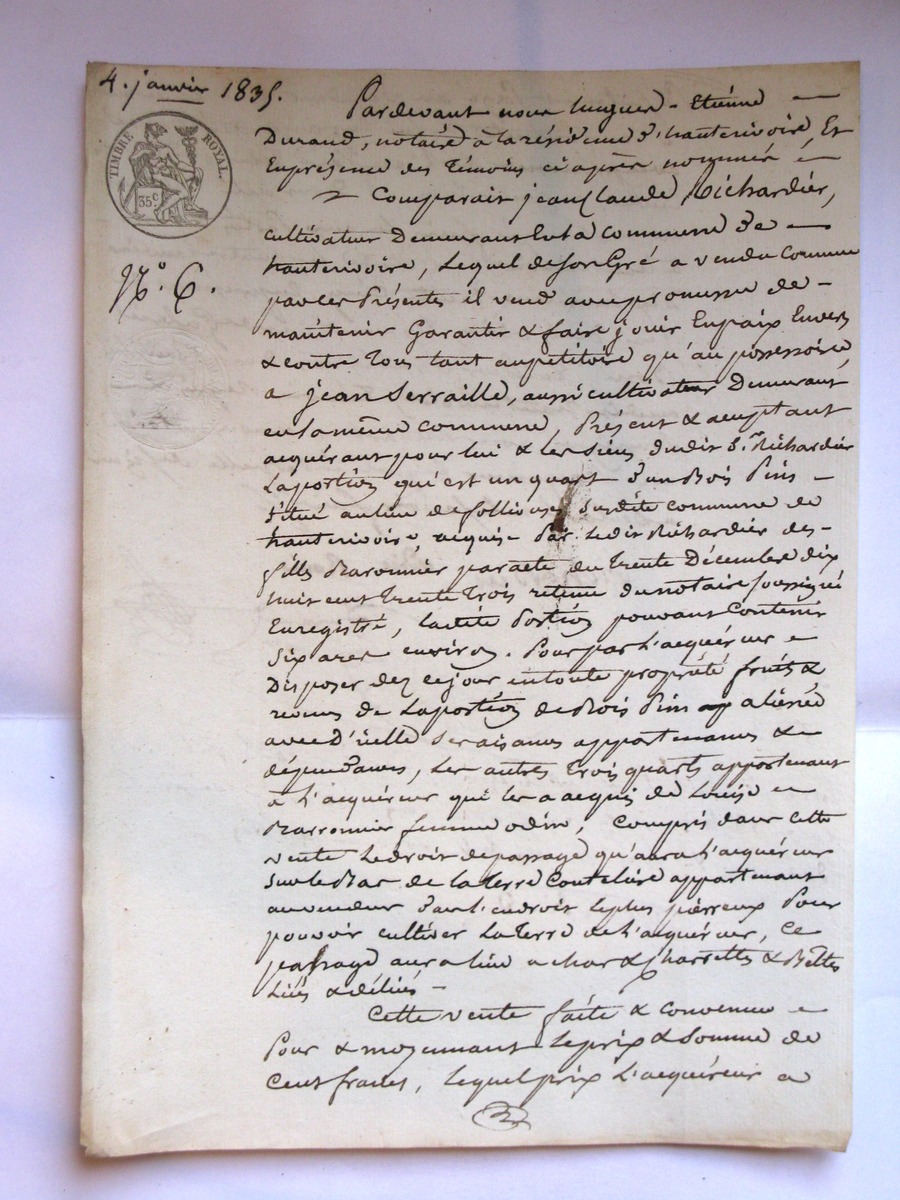 4. janvier 1835.
TIMBRE ROYAL.
35c.
N.o 6.
Pardevant nous hugues - Etiénne
Durand, notaire à la résidence d'hauterivoire, Et
Enprésence des Témoins ci après nommés
Comparait jean Claude Richardier,
cultivateur Demeurant En la commune de
hauterivoire, Lequel deson Gré a vendu Comme
par ces Présentes il vend avec promesse de -
maintenir Garantir & faire jouir Enpaix Envers
& contre Tous tant aupetitoire qu'au possessoire,
a jean Serraille, aussi cultivateur Demeurant
en la même commune, Présent & acceptant
acquérant pour lui & les siens dudit S.r Richardier
Laportion qui est un quart d'un Bois Pins -
situé aulieu de follieuse susdite commune de
hauterivoire, acquise Par Ledit Richardier des -
Gilles Baronnier paracte du Trente Décembre dix
huit cent trente Trois retenu du notaire soussigné
Enregistré, Ladite Portion pouvant Contenir
Six ares environ. Pour par L'acquéreur
Disposer dez cejour entoute propriété fruits &
revenus de Laportion de Bois Pins aliénée
avec d'icelle ses aisances appartenances &
dépendances, Les autres trois quarts appartenant
à L'acquéreur qui les a acquis de Louise
Barronnier femme odin, Compris dans cette
vente Ledroit depassage qu'aura L'acquéreur
sur le Bas de la terre Contelière appartenant
auvendeur dans l'endroit leplus pierreux Pour
pouvoir cultiver La Terre de L'acquéreur, Ce
passage aura lieu a char & charrettes & Bettes
Liés & déliés -
Cette vente faite & convenue
Pour & moyennant Leprix & Somme de
Cent francs, Lequel prix L'acquéreur a